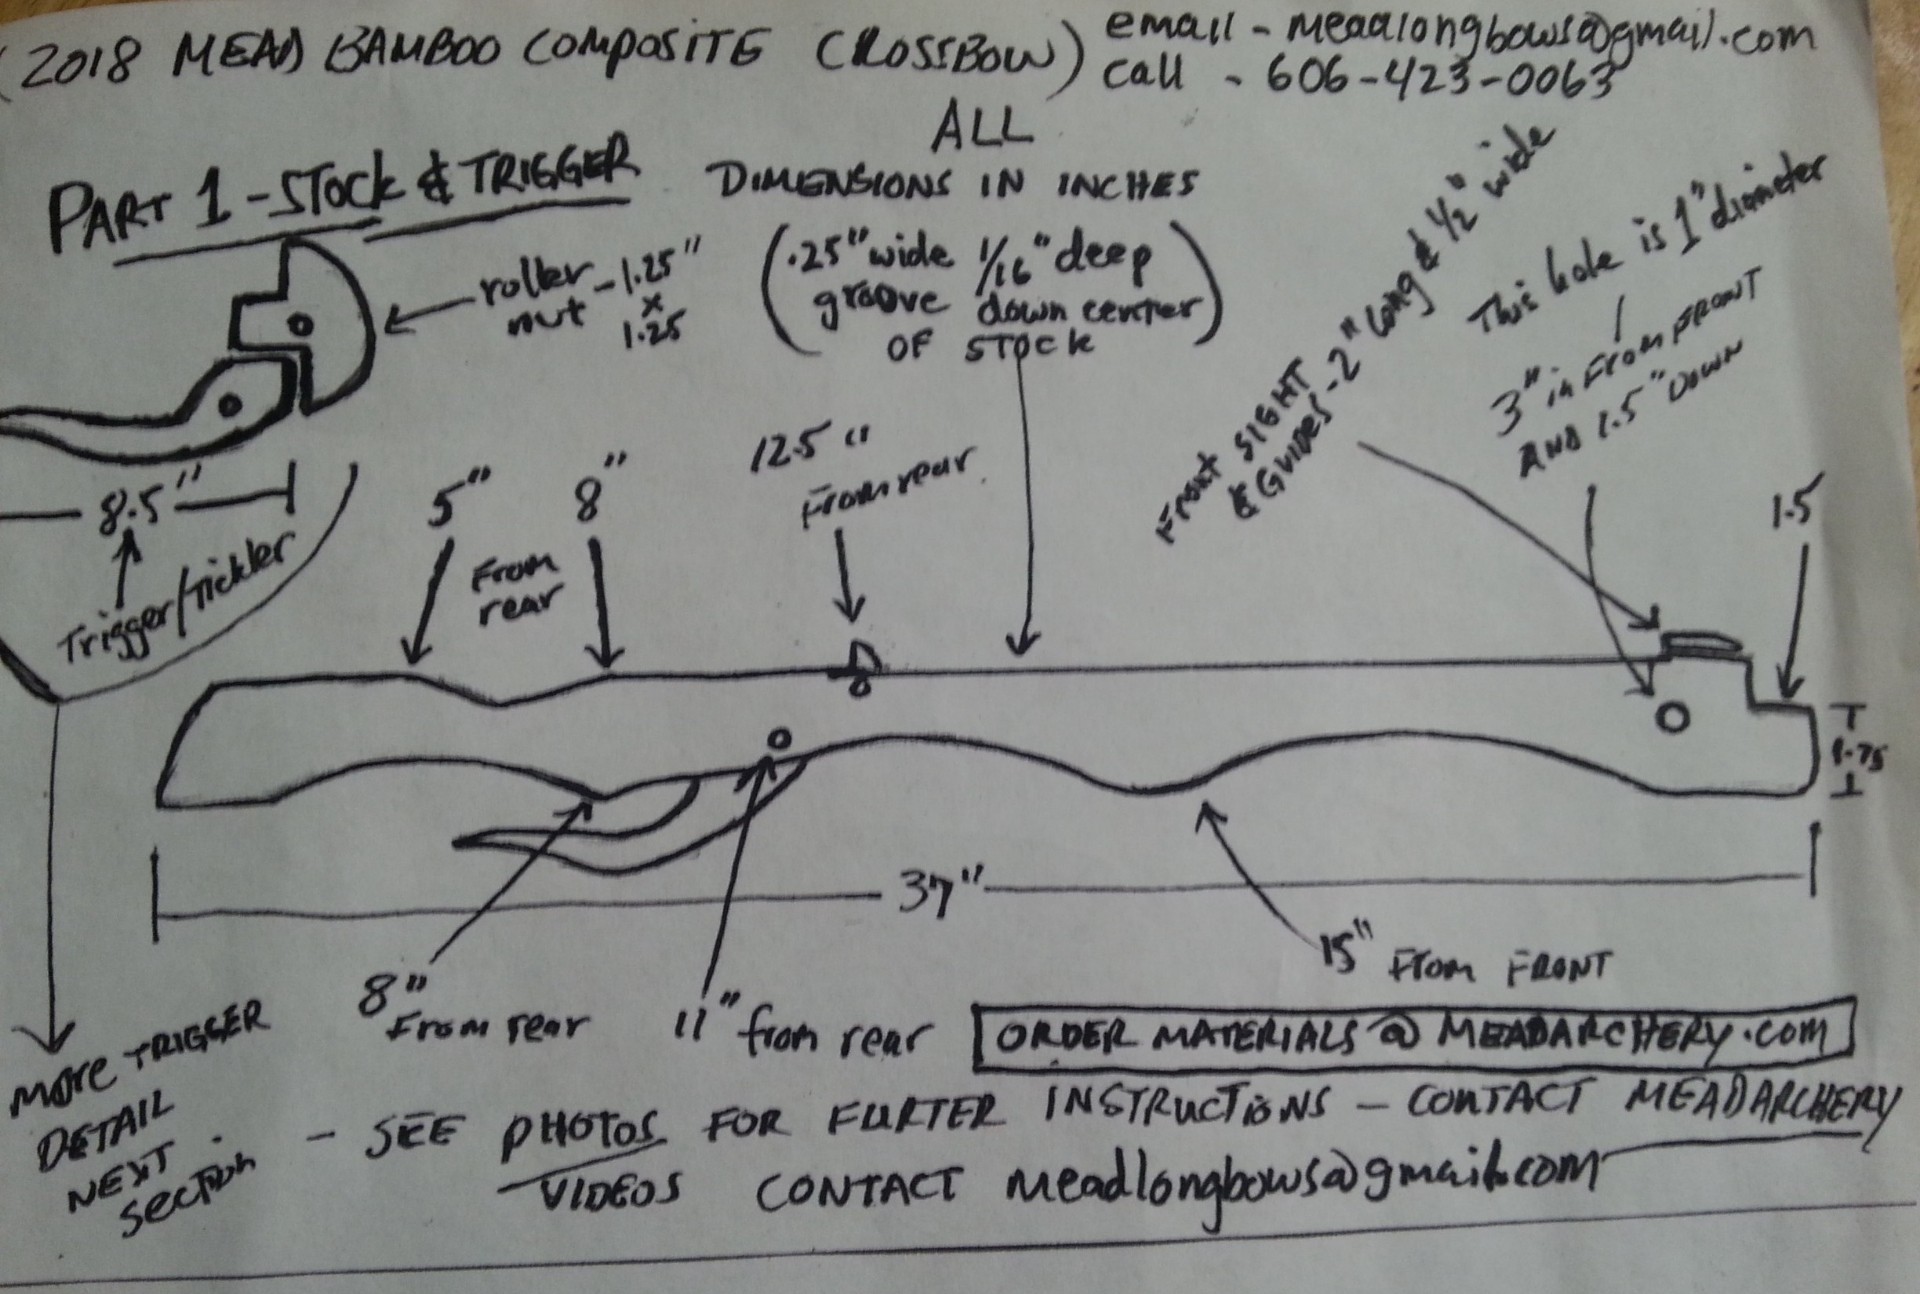 (2018 MEAD BAMBOO COMPOSITE CROSSBOW)
email - meadlongbows@gmail.com
call - 606-423-0063
PART 1 - STOCK & TRIGGER
ALL
DIMENSIONS IN INCHES
roller nut - 1.25" x 1.25
(.25" wide 1/16" deep
groove down center
OF STOCK)
Front SIGHT
& GUIDES - 2" long & 1/2" wide
This hole is 1" diameter
3" in From FRONT
AND 1.5" DOWN
1.5
8.5"
Trigger/Tickler
5"
From
rear
8"
12.5"
From rear
1.75
37"
8"
From rear
11" from rear
15" From FRONT
MORE TRIGGER
DETAIL
NEXT
Section
ORDER MATERIALS @ MEADARCHERY.com
- SEE PHOTOS FOR FURTER INSTRUCTIONS - CONTACT MEADARCHERY
VIDEOS CONTACT meadlongbows@gmail.com